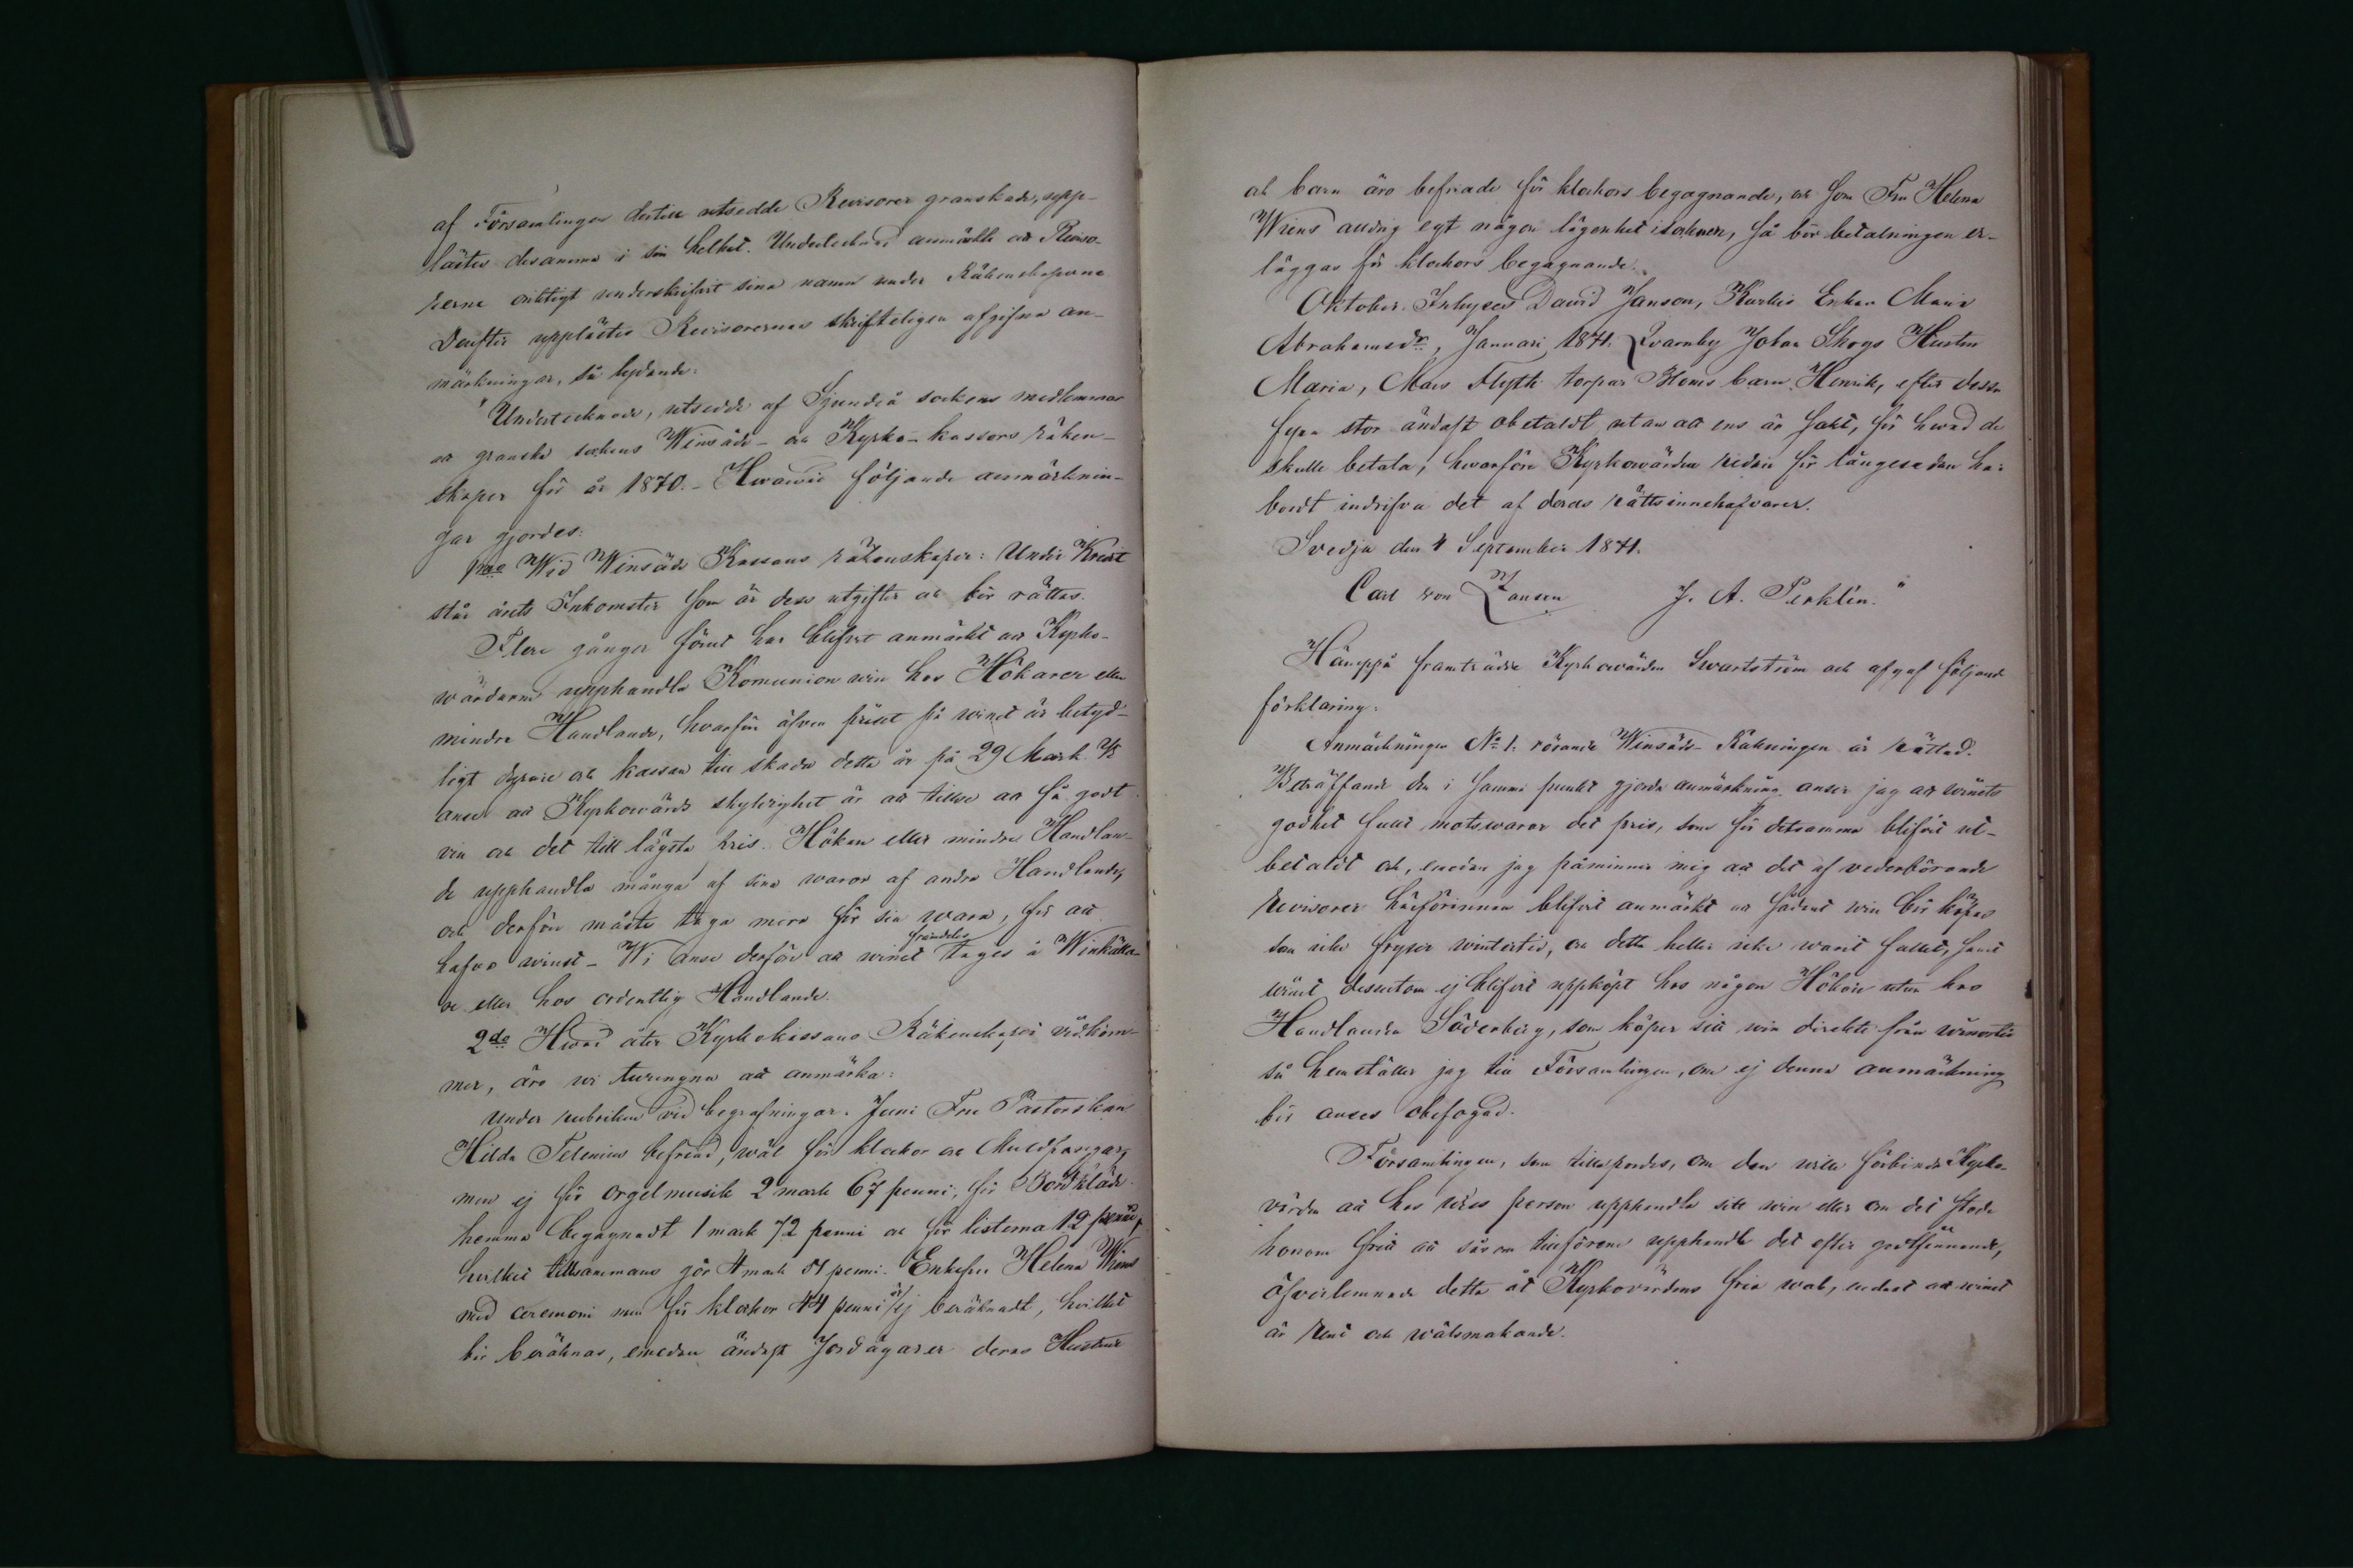 af Församlingen dertill utsedde Revisorer granskade, upp-
lästes desamma i sin helhet. Undertecknad anmärkte att Reviso-
rerne riktigt underskrifvit sina namn under Räkenskaperna
Derefter upplästes Revisorernas skrifteligen afgifna an-
märkningar, så lydande:
"Undertecknade, utsedde af Sjundeå sockens medlemmar
att granska sockens Winsäds- och Kyrko-kassors räken-
skaper för år 1870. - Hwarvid följande anmärknin-
gar gjordes:
1mo Wid Winsäds Kassans räkenskaper: Under Kredit
står årets Inkomster som är dess utgifter och bör rättas.
Flere gånger förut har blifvit anmärkt att Kyrko-
wärdarne upphandla Komunion win hos Hökarer eller
mindre Handlande, hvarför äfven priset på winet är betyd-
ligt dyrare och kassan till skada detta år på 29 Mark. Vi
anse att Kyrkowärds skyldighet är att tillse att få godt
vin och det till lägsta pris. Hökare eller mindre Handlan-
de upphandla många af sina waror af andra Handlande,
och derför måste taga mera för sin wara, för att
hafva winst - Wi anse derför att winet framdeles tages å Winkälla-
re eller hos ordentlig Handlande.
2do Hwad åter Kyrkokassans Räkenskaper vidkom-
mer, äro wi twungna att anmärka:
Under rubriken vid begrafningar. Juni Fru Pastorskan
Hilda Telenius befriad, wäl för klockor och Mullpengar,
men ej för orgelmusik 2 mark 67 penni, för Bordkläde
hemma begagnadt 1 mark 72 penni och för listerna 12 penni,
hvilket tillsammans gör 4 mark 51 penni. Enkefru Helena Wrens
med ceremoni men för klockor 44 penni är ej beräknadt, hvilket
bör beräknas, emedan ändast Jordägarer deras Hustrur
och barn äro befriade för klockors begagnande, och som Fru Helena
Wrens aldrig egt någon lägenhet i socknen, så bör betalningen er-
läggas för klockors begagnande.
Oktober. Inhyses David Janson, Kurkis Enkan Maria
Abrahamsdr, Januari 1871. Qvarnby Johan Skogs Hustru
Maria, Mars Flyth torpar Bloms barn Henrik, efter dessa
fyra stor ändast obetaldt utan att ens är sakt, för hwad de
skulle betala, hwarföre Kyrkowärden redan för längesedan ha-
bordt indrifva det af deras rättsinnehafvarer.
Svedja den 4 September 1871.
Carl von Zansen J. A. Perklén."
Häruppå framträdde Kyrkowärden Swartström och afgaf följande
förklaring:
Anmärkningen No 1. rörande Winsäds-Räkningen är rättad.
Beträffande den i samma punkt gjorda anmärkning anser jag att winets
godhet fullt motswarar det pris, som för detsamma blifvit ut-
betaldt och, emedan jag påminner mig att det af vederbörande
Revisorer härförinnan blifvit anmärkt att sådant win bör köpas
som icke fryser wintertid, och detta heller icke warit fallet, samt
winet dessutom ej blifvit uppköpt hos någon Hökare utan hos
Handlanden Söderberg, som köper sitt win direkte från winorter
så hemställer jag till Församlingen, om ej denna anmärkning
bör anses obefogad.
Församlingen, som tillspordes, om den wille förbinda Kyrko-
värden att hos wiss person upphandla sitt win eller om det stode
honom fritt att såsom tillförene upphandla det efter godtfinnande,
öfverlemnade detta åt Kyrkovärdens fria wal, endast att winet
är rent och wälsmakande.